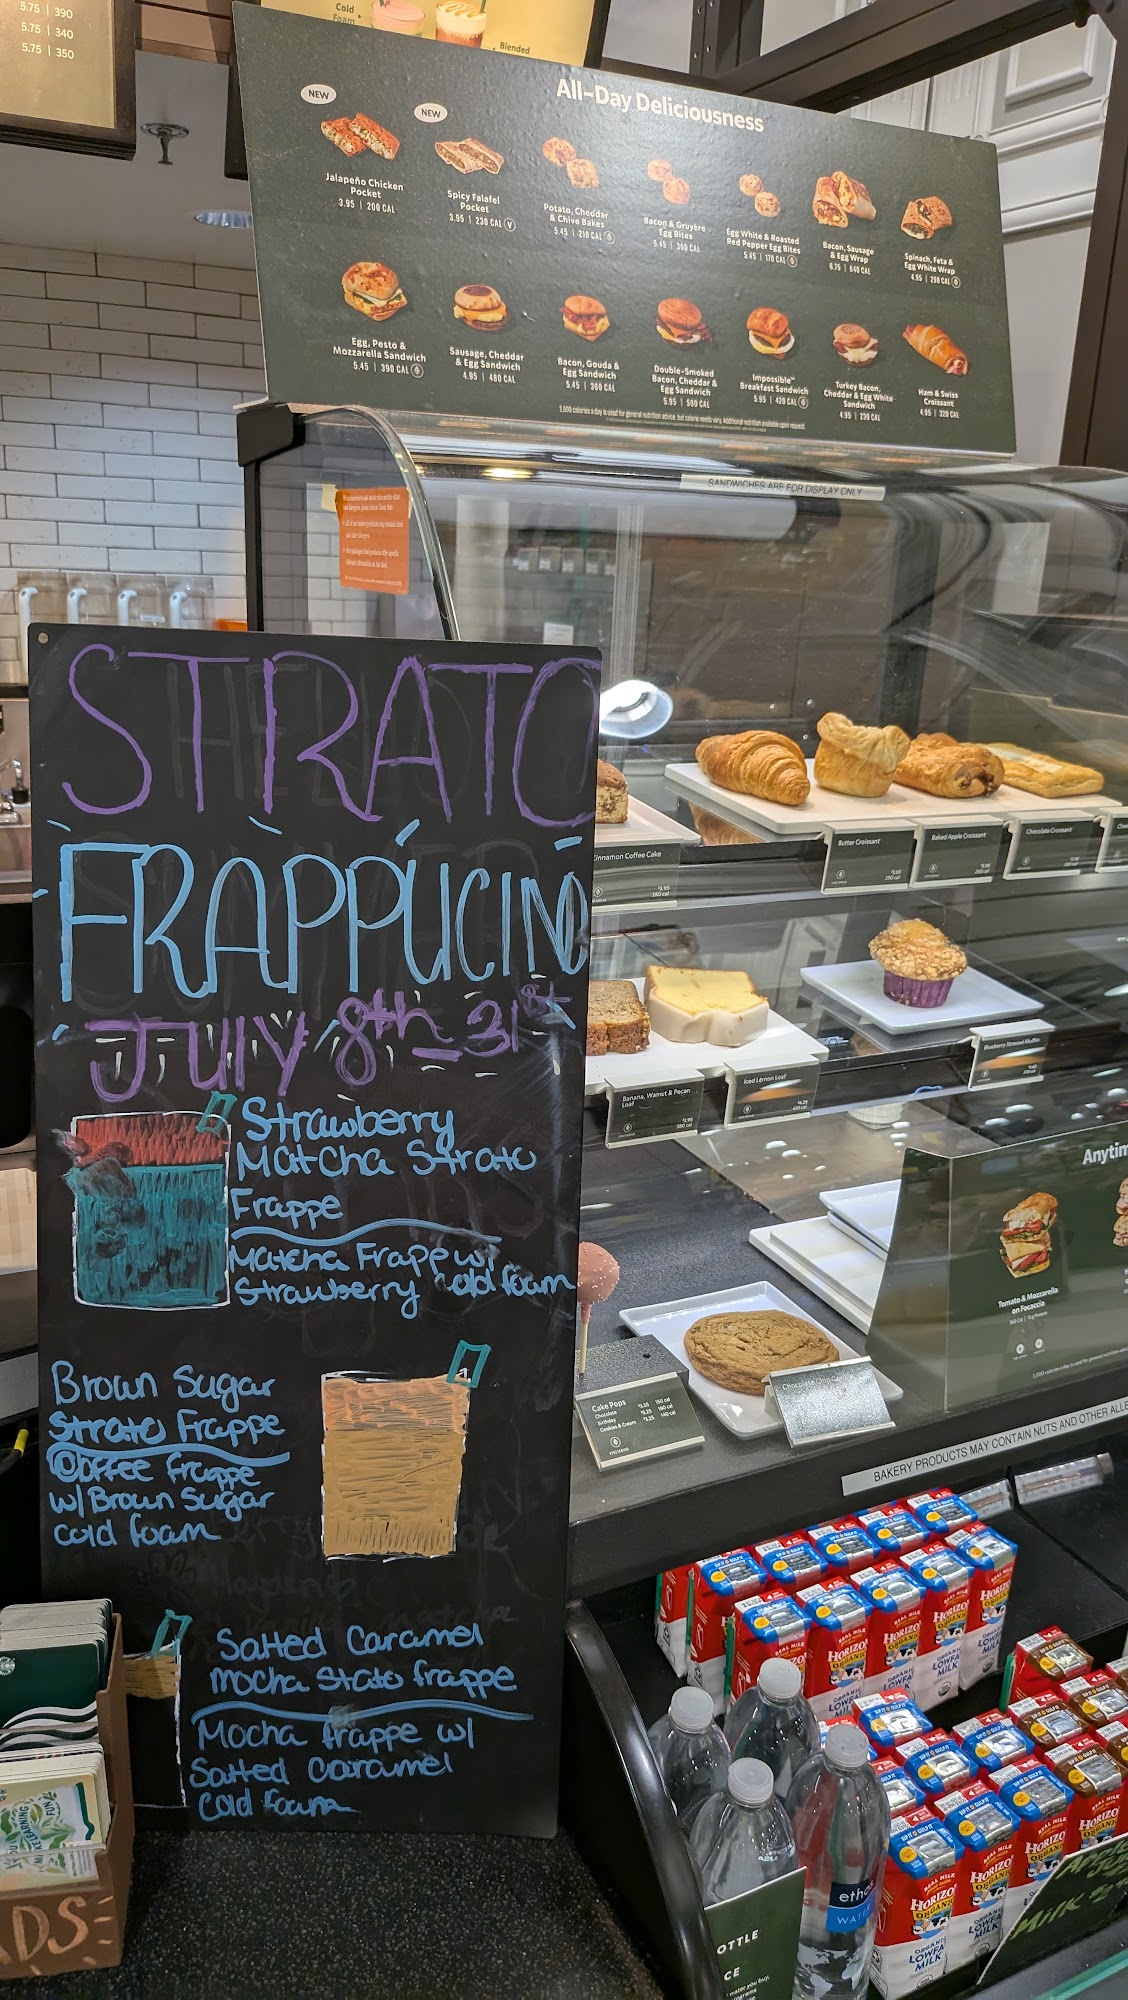 5.75 | 390
5.75 | 340
5.75 | 350
Cold
Foam
Blended
All-Day Deliciousness
NEW
Jalapeño Chicken
Pocket
3.95 | 200 CAL
NEW
Spicy Falafel
Pocket
3.95 | 230 CAL V
Potato, Cheddar
& Chive Bakes
5.45 | 210 CAL
Bacon & Gruyère
Egg Bites
5.45 | 300 CAL
Egg White & Roasted
Red Pepper Egg Bites
5.45 | 170 CAL
Bacon, Sausage
& Egg Wrap
6.75 | 640 CAL
Spinach, Feta &
Egg White Wrap
4.95 | 290 CAL
Egg, Pesto &
Mozzarella Sandwich
5.45 | 390 CAL
Sausage, Cheddar
& Egg Sandwich
4.95 | 480 CAL
Bacon, Gouda &
Egg Sandwich
5.45 | 360 CAL
Double-Smoked
Bacon, Cheddar &
Egg Sandwich
5.95 | 500 CAL
Impossible™
Breakfast Sandwich
5.95 | 420 CAL
Turkey Bacon,
Cheddar & Egg White
Sandwich
4.95 | 230 CAL
Ham & Swiss
Croissant
4.95 | 320 CAL
2,000 calories a day is used for general nutrition advice, but calorie needs vary. Additional nutrition available upon request.
SANDWICHES ARE FOR DISPLAY ONLY
STRATO
FRAPPUCINO
JULY 8th - 31st
Strawberry
Matcha Strato
Frappe
Matcha Frappe w/
Strawberry cold foam
Brown Sugar
Strato Frappe
Coffee frappe
w/ Brown Sugar
cold foam
Salted Caramel
mocha Stato frappe
Mocha frappe w/
Salted Caramel
cold foam
Butter Croissant
Baked Apple Croissant
Chocolate Croissant
Cinnamon Coffee Cake
Blueberry Streusel Muffin
Banana, Walnut & Pecan
Loaf
Iced Lemon Loaf
Anytim
Tomato & Mozzarella
on Focaccia
Cake Pops
Chocolate
Birthday
Cookies & Cream
BAKERY PRODUCTS MAY CONTAIN NUTS AND OTHER ALLE
HORIZON
ORGANIC
LOWFAT
MILK
ethos
WATER
OTTLE
CE
Milk
DS